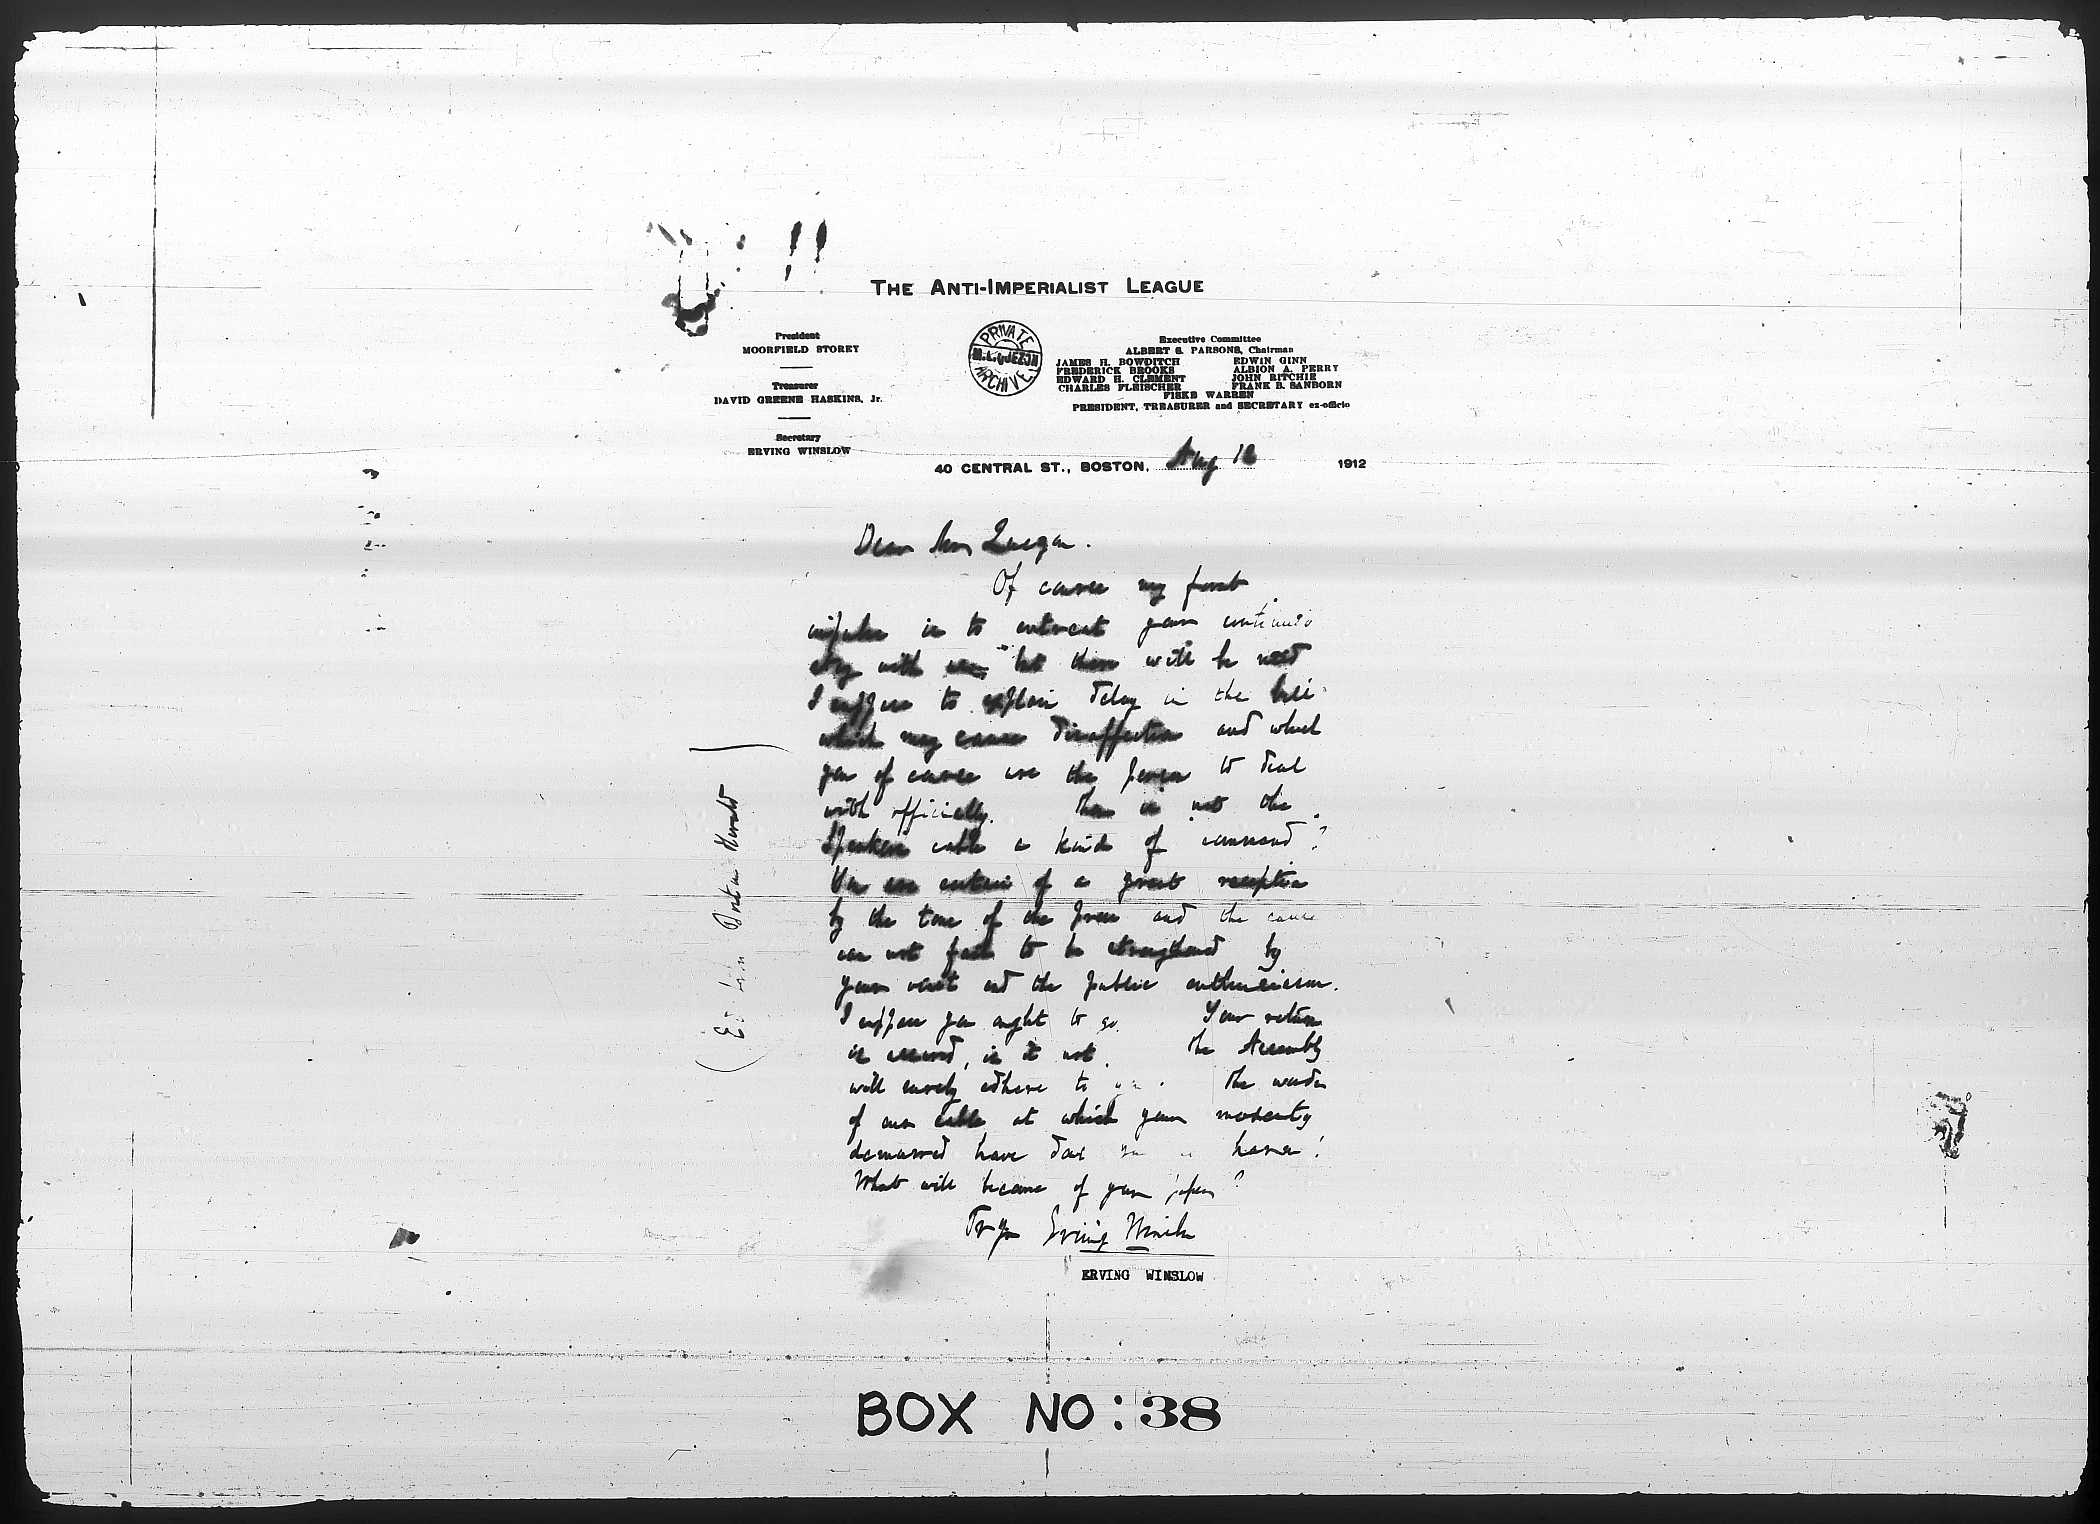 THE ANTI-IMPERIALIST LEAGUE
President
MOORFIELD STOREY
Treasurer
DAVID GREENE HASKINS, Jr.
Secretary
ERVING WINSLOW
PRIVATE
M.L.QUEZON
ARCHIVE
Executive Committee
ALBERT S. PARSONS, Chairman
JAMES H. BOWDITCH EDWIN GINN
FREDERICK BROOKS ALBION A. PERRY
EDWARD H. CLEMENT JOHN RITCHIE
CHARLES FLEISCHER FRANK B. SANBORN
FISKE WARREN
PRESIDENT, TREASURER and SECRETARY ex-officio
40 CENTRAL ST., BOSTON, Aug 12 1912
Dear Mr Quezon.
Of course my first
impulse is to entreat your continued
stay with us, but there will be need
I suppose to explain delay in the bill
which may cause disaffection and which
you of course are the person to deal
with officially. Then is not the
Speaker's cable a kind of command?
You are certain of a great reception
by the tone of the press and the cause
can not fail to be strengthened by
your visit and the public enthusiasm.
I suppose you ought to go. Your return
is assured, is it not. The Assembly
will surely adhere to you. The words
of our cable at which your modesty
demurred have done no harm!
What will become of your paper?
Try Erving Winslow
ERVING WINSLOW
Boston Herald
BOX NO: 38